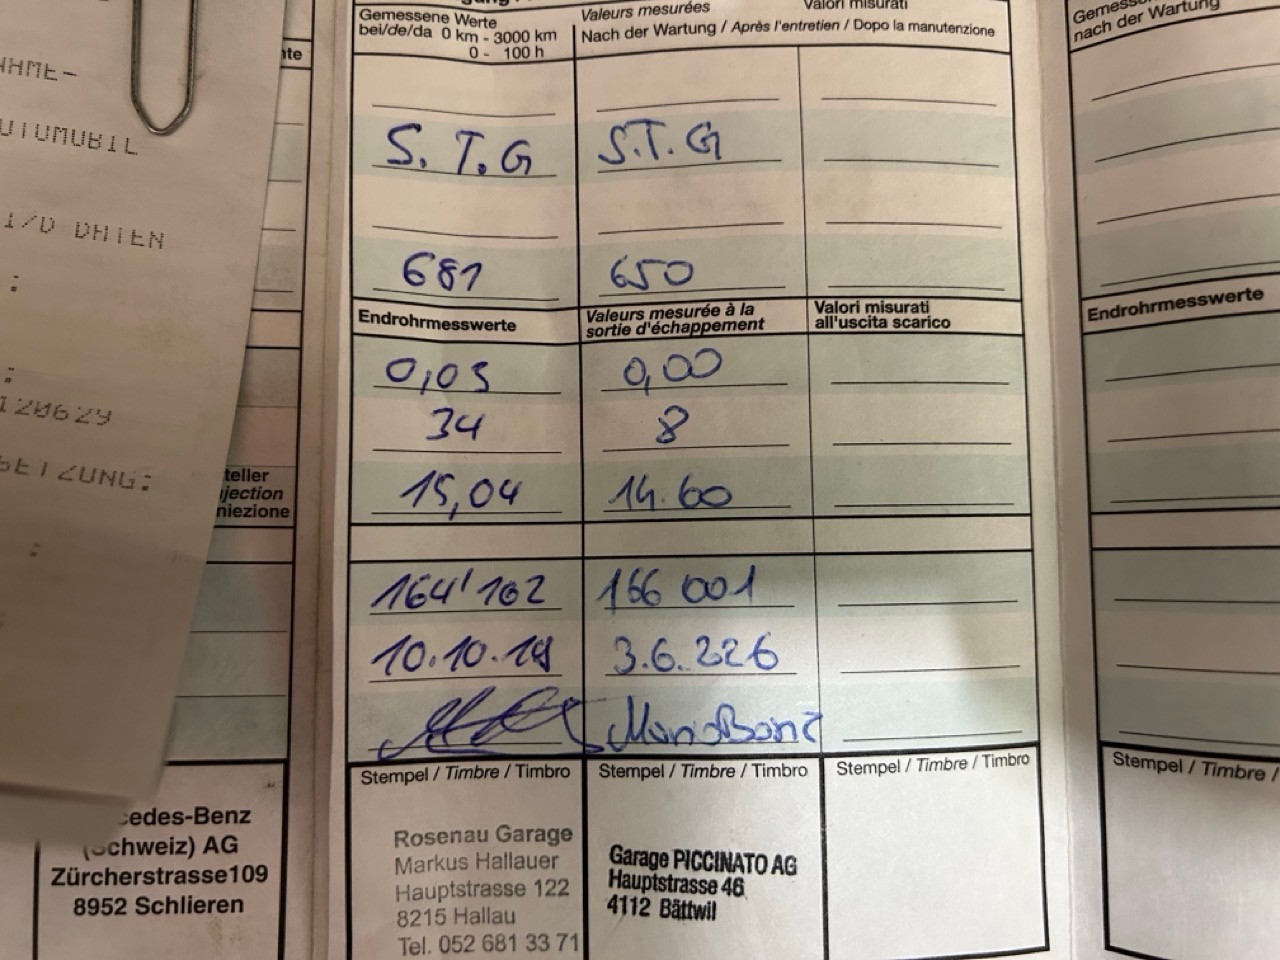 Gemessene Werte
bei/de/da 0 km - 3000 km
0 - 100 h
Valeurs mesurées
Valori misurati
Nach der Wartung / Après l'entretien / Dopo la manutenzione
nach der Wartung
S. T. G
S.T.G
681
650
Endrohrmesswerte
Valeurs mesurée à la
sortie d'échappement
Valori misurati
all'uscita scarico
Endrohrmesswerte
0,05
0,00
34
8
15,04
14.60
164'162
166 001
10.10.19
3.6.226
Stempel / Timbre / Timbro
Stempel / Timbre / Timbro
Stempel / Timbre / Timbro
Stempel / Timbre /
Rosenau Garage
Markus Hallauer
Hauptstrasse 122
8215 Hallau
Tel. 052 681 33 71
Garage PICCINATO AG
Hauptstrasse 46
4112 Bättwil
edes-Benz
(Schweiz) AG
Zürcherstrasse109
8952 Schlieren
teller
jection
niezione